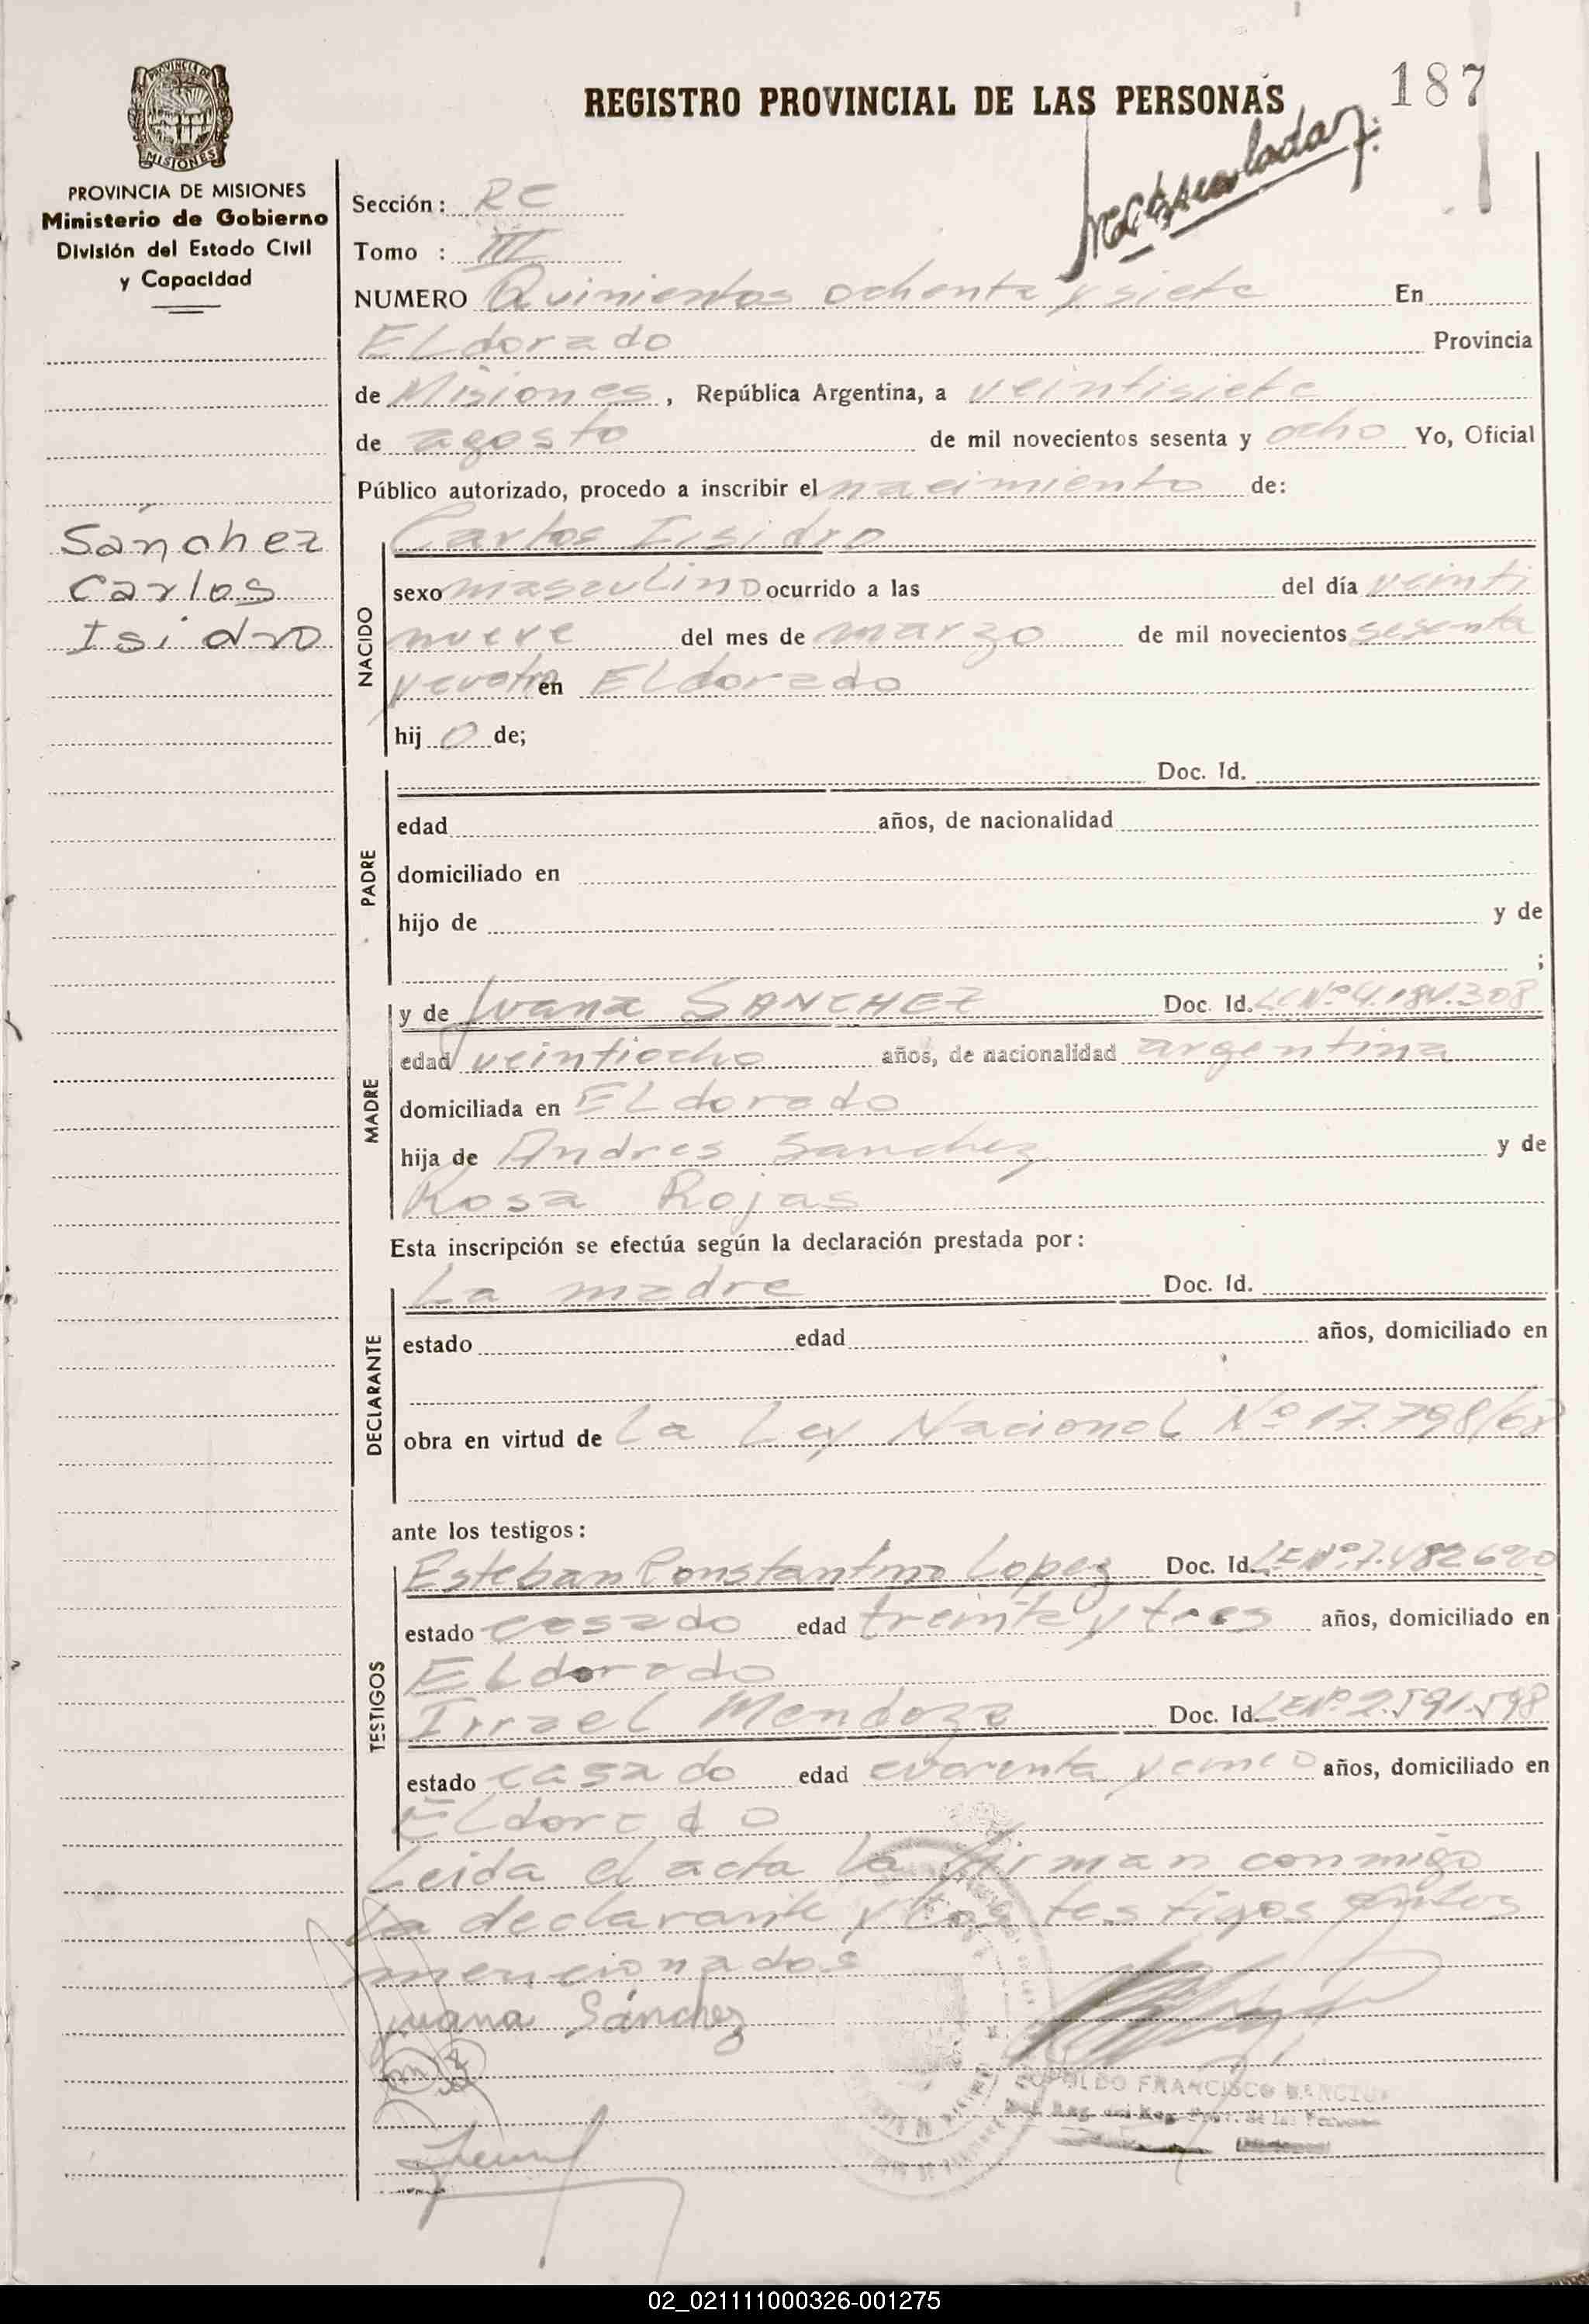 REGISTRO PROVINCIAL DE LAS PERSONAS
187
PROVINCIA DE MISIONES
MISIONES
PROVINCIA DE MISIONES
Ministerio de Gobierno
División del Estado Civil
y Capacidad
Sánchez
Carlos
Isidro
Sección: RC
Tomo : III
NUMERO Quinientos ochenta y siete En
ELdorado Provincia
de Misiones, República Argentina, a veintisiete
de agosto de mil novecientos sesenta y ocho Yo, Oficial
Público autorizado, procedo a inscribir el nacimiento de:
NACIDO
Carlos Isidro
sexo masculino ocurrido a las del día veinti
nueve del mes de marzo de mil novecientos sesenta
y cuatro en ELdorado
hij o de;
PADRE
Doc. Id.
edad años, de nacionalidad
domiciliado en
hijo de y de
;
MADRE
y de Juana SANCHEZ Doc. Id. LC Nº 4.184.308
edad veintiocho años, de nacionalidad argentina
domiciliada en ELdorado
hija de Andres Sanchez y de
Rosa Rojas
Esta inscripción se efectúa según la declaración prestada por:
DECLARANTE
La madre Doc. Id.
estado edad años, domiciliado en
obra en virtud de La Ley Nacional Nº 17.798/68
ante los testigos:
TESTIGOS
Esteban Constantino Lopez Doc. Id. LE Nº 7.482620
estado casado edad treinta y tres años, domiciliado en
ELdorado
Irrael Mendoza Doc. Id. LE Nº 2.591.598
estado casado edad cuarenta y cinco años, domiciliado en
ELdorado
Leida el acta la firman conmigo
la declarante y los testigos antes
mencionados
Juana Sánchez
LEOPOLDO FRANCISCO
02_021111000326-001275